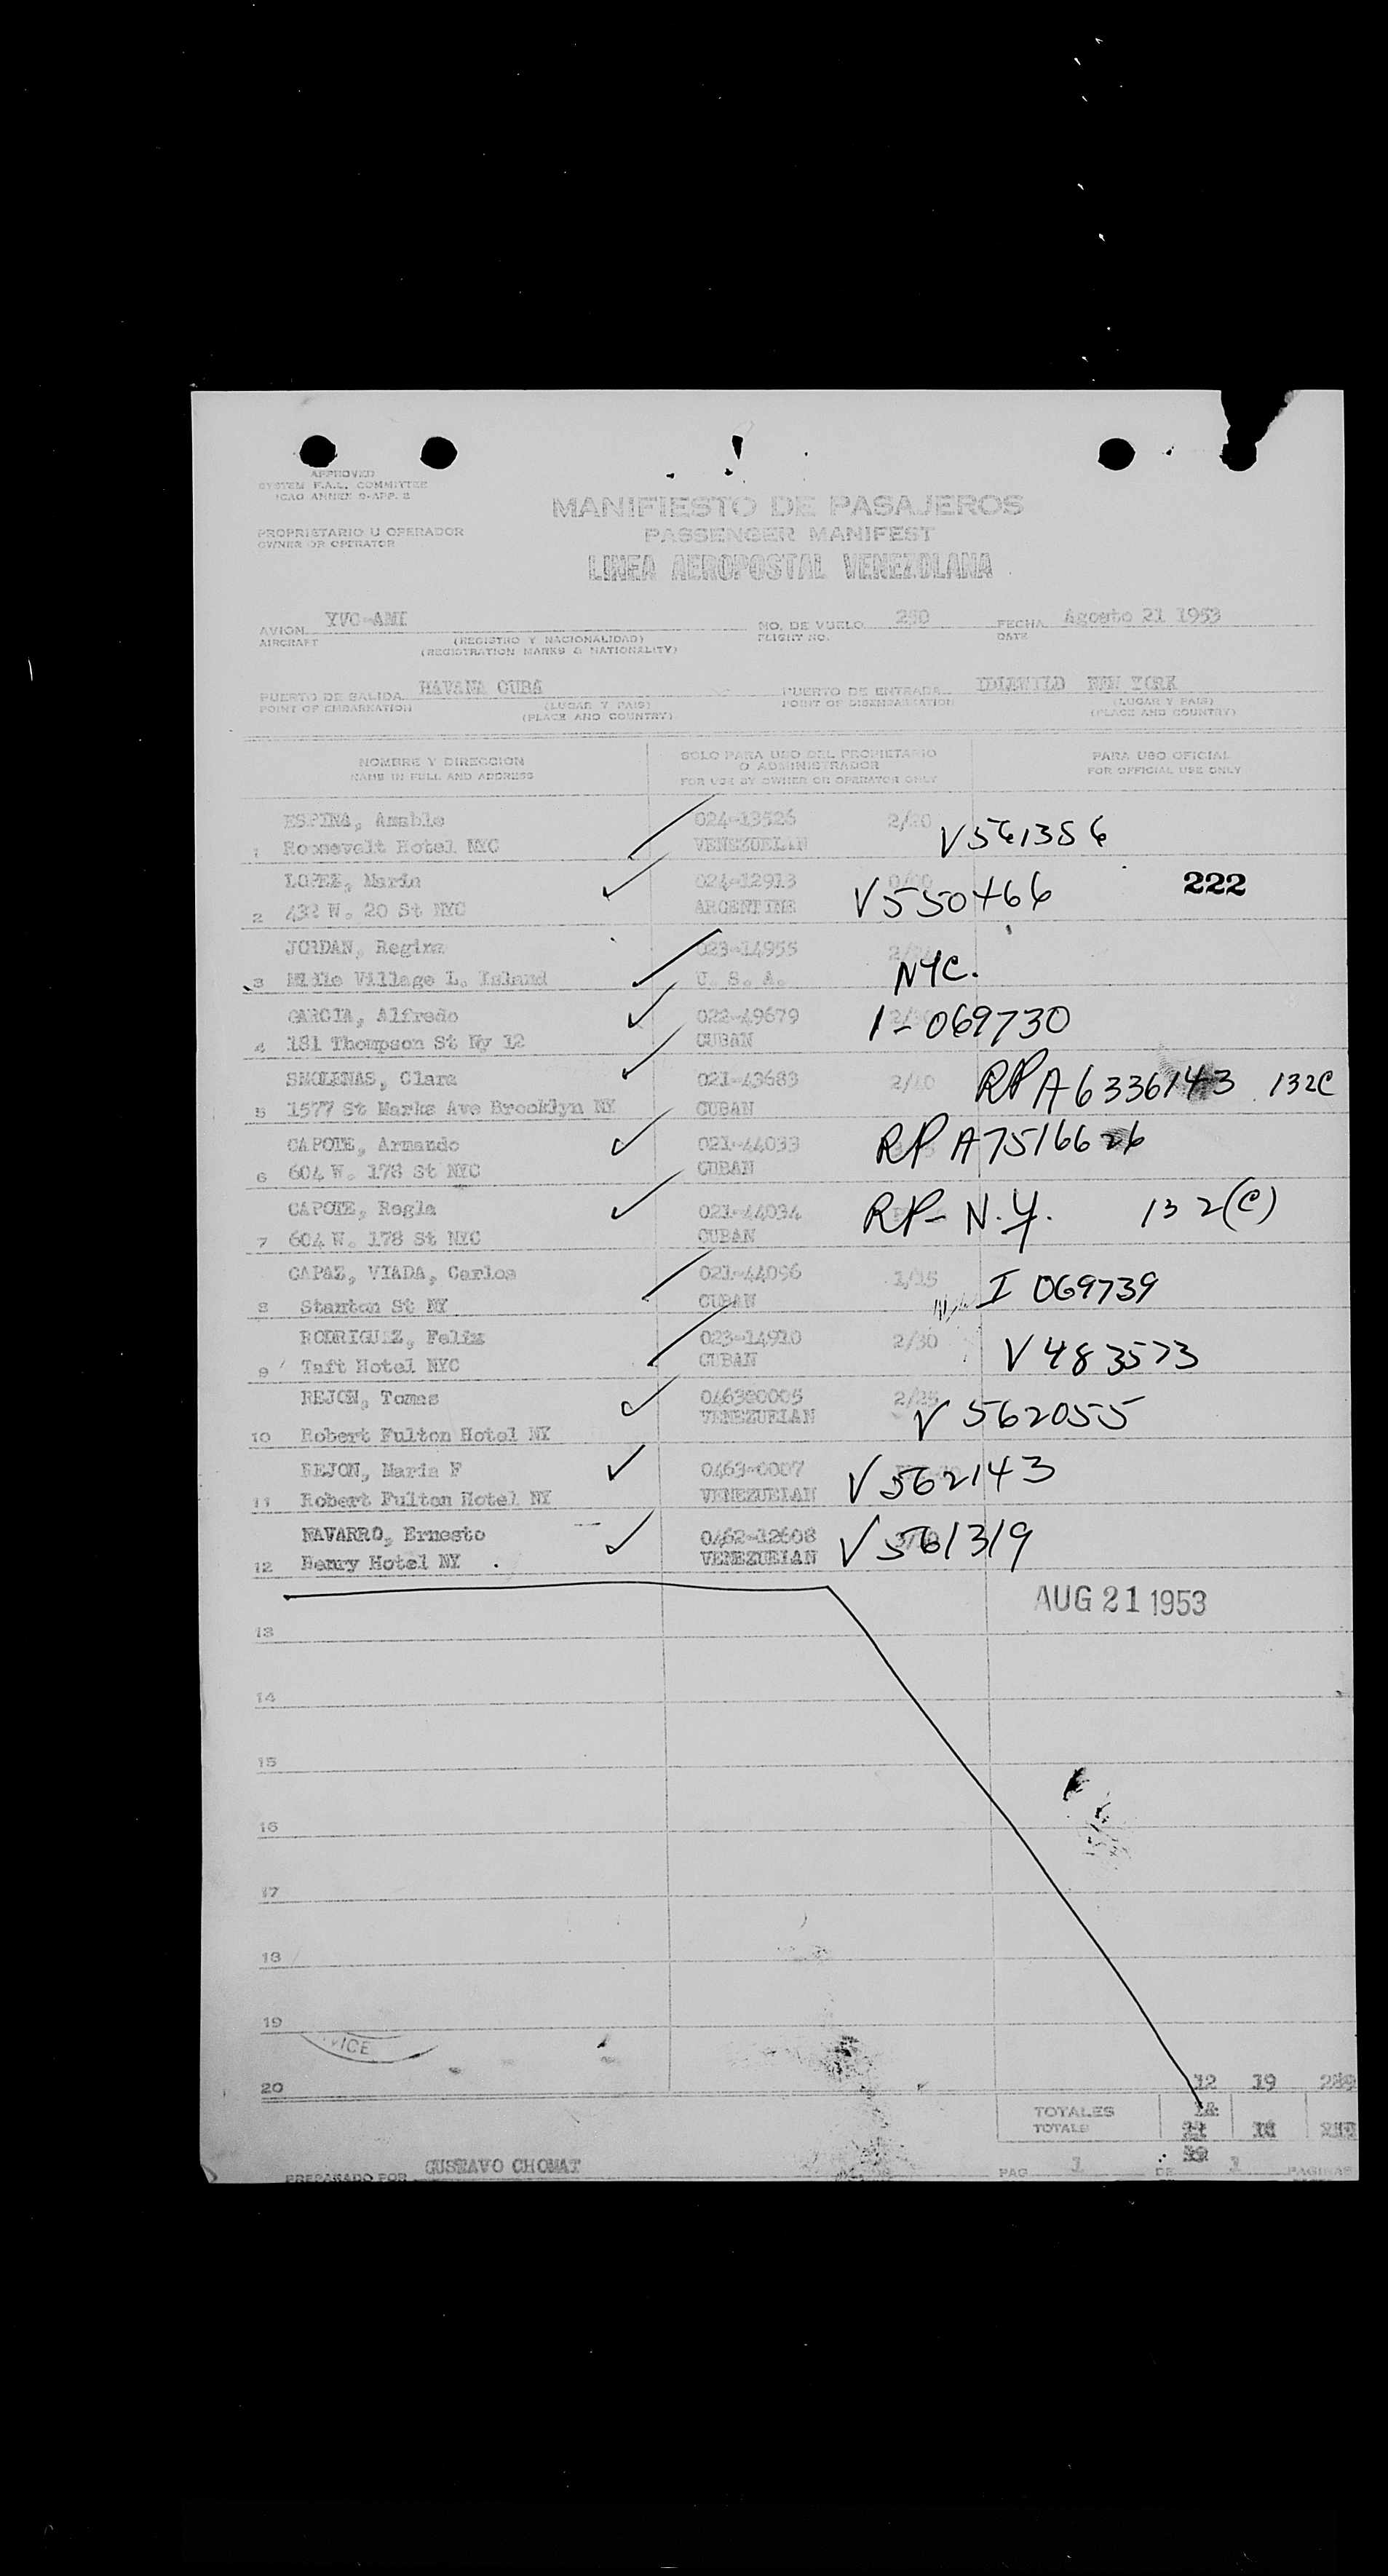 APPROVED
SYSTEM F.A.L. COMMITTEE
ICAO ANNEX 9-APP. 3
MANIFIESTO DE PASAJEROS
PROPRIETARIO U OPERADOR
OWNER OR OPERATOR
PASSENGER MANIFEST
LINEA AEROPOSTAL VENEZOLANA
AVION YVC-AMI NO. DE VUELO 250 FECHA Agosto 21 1953
AIRCRAFT (REGISTRO Y NACIONALIDAD) FLIGHT NO. DATE
(REGISTRATION MARKS & NATIONALITY)
PUERTO DE SALIDA HAVANA CUBA PUERTO DE ENTRADA IDLEWILD NEW YORK
POINT OF EMBARKATION (LUGAR Y PAIS) POINT OF DISEMBARKATION (LUGAR Y PAIS)
(PLACE AND COUNTRY) (PLACE AND COUNTRY)
NOMBRE Y DIRECCION SOLO PARA USO DEL PROPIETARIO O ADMINISTRADOR PARA USO OFICIAL
NAME IN FULL AND ADDRESS FOR USE BY OWNER OR OPERATOR ONLY FOR OFFICIAL USE ONLY
ESPINA, Amable 024-13526 2/20
1 Roosevelt Hotel NYC VENEZUELAN V561356
LOPEZ, Maria 024-12913
2 432 W. 20 St NYC ARGENTINE V550466 222
JORDAN, Regina 023-14955
3 Village L. Island U. S. A. NYC.
GARCIA, Alfredo 022-49679 I-069730
4 181 Thompson St Ny 12 CUBAN
SMOLENAS, Clara 021-43683 2/40 RP A6336143 132C
5 1577 St Marks Ave Brooklyn NY CUBAN
CAPOTE, Armando 021-44033 RP A7516626
6 604 W. 178 St NYC CUBAN
CAPOTE, Regla 021-44034 RP- N.Y. 132(C)
7 604 W. 178 St NYC CUBAN
CAPAZ, VIADA, Carlos 021-44096 1/15 I 069739
8 Stanton St NY CUBAN
RODRIGUEZ, Felix 023-14910 2/30 V483573
9 Taft Hotel NYC CUBAN
REJON, Tomas 046380005 2/25
VENEZUELAN V 562055
10 Robert Fulton Hotel NY
REJON, Maria F 0463-0007 V562143
11 Robert Fulton Hotel NY VENEZUELAN
NAVARRO, Ernesto 0462-12608 V561319
12 Henry Hotel NY . VENEZUELAN
AUG 21 1953
13
14
15
16
17
18
19
VICE
20 12 19
TOTALES 14
TOTALS
PREPARADO POR GUSTAVO CHOMAT PAG 1 DE 1 PAGINAS